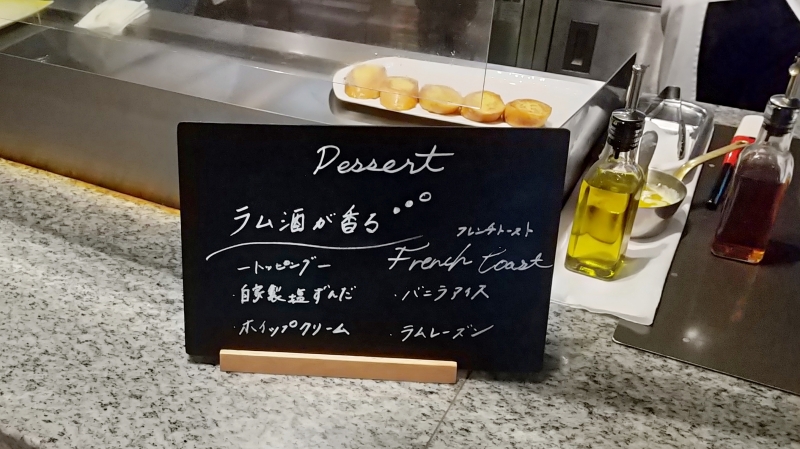 Dessert
ラム酒が香る
フレンチトースト
French toast
ートッピングー
・自家製塩ずんだ
・バニラアイス
・ホイップクリーム
・ラムレーズン